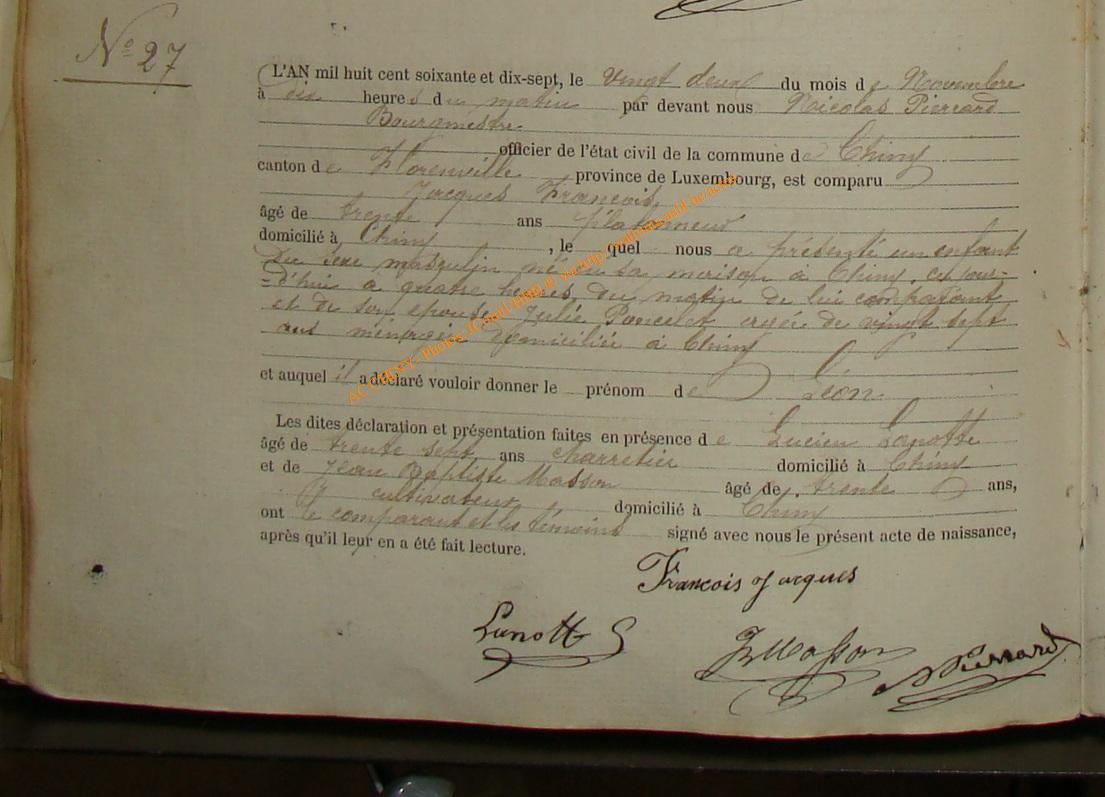 No 27
L'AN mil huit cent soixante et dix-sept, le vingt deux du mois de Novembre
à dix heures du matin par devant nous Nicolas Pierrard
Bourgmestre
officier de l'état civil de la commune de Chiny
canton de Florenville province de Luxembourg, est comparu
Jacques François,
âgé de trente ans plafonneur
domicilié à Chiny, lequel nous a présenté un enfant
du sexe masculin né en sa maison à Chiny, ce jour-
=d'hui à quatre heures du matin de lui comparant
et de son épouse Julie Poncelet agée de vingt sept
ans ménagère domiciliée à Chiny
et auquel il a déclaré vouloir donner le prénom de Léon
Les dites déclaration et présentation faites en présence de Lucien Lanotte
âgé de trente sept ans charretier domicilié à Chiny
et de Jean Baptiste Masson âgé de trente ans,
cultivateur domicilié à Chiny
ont le comparant et les témoins signé avec nous le présent acte de naissance,
après qu'il leur en a été fait lecture.
François Jacques
Lanotte
JBMasson
NPierrard